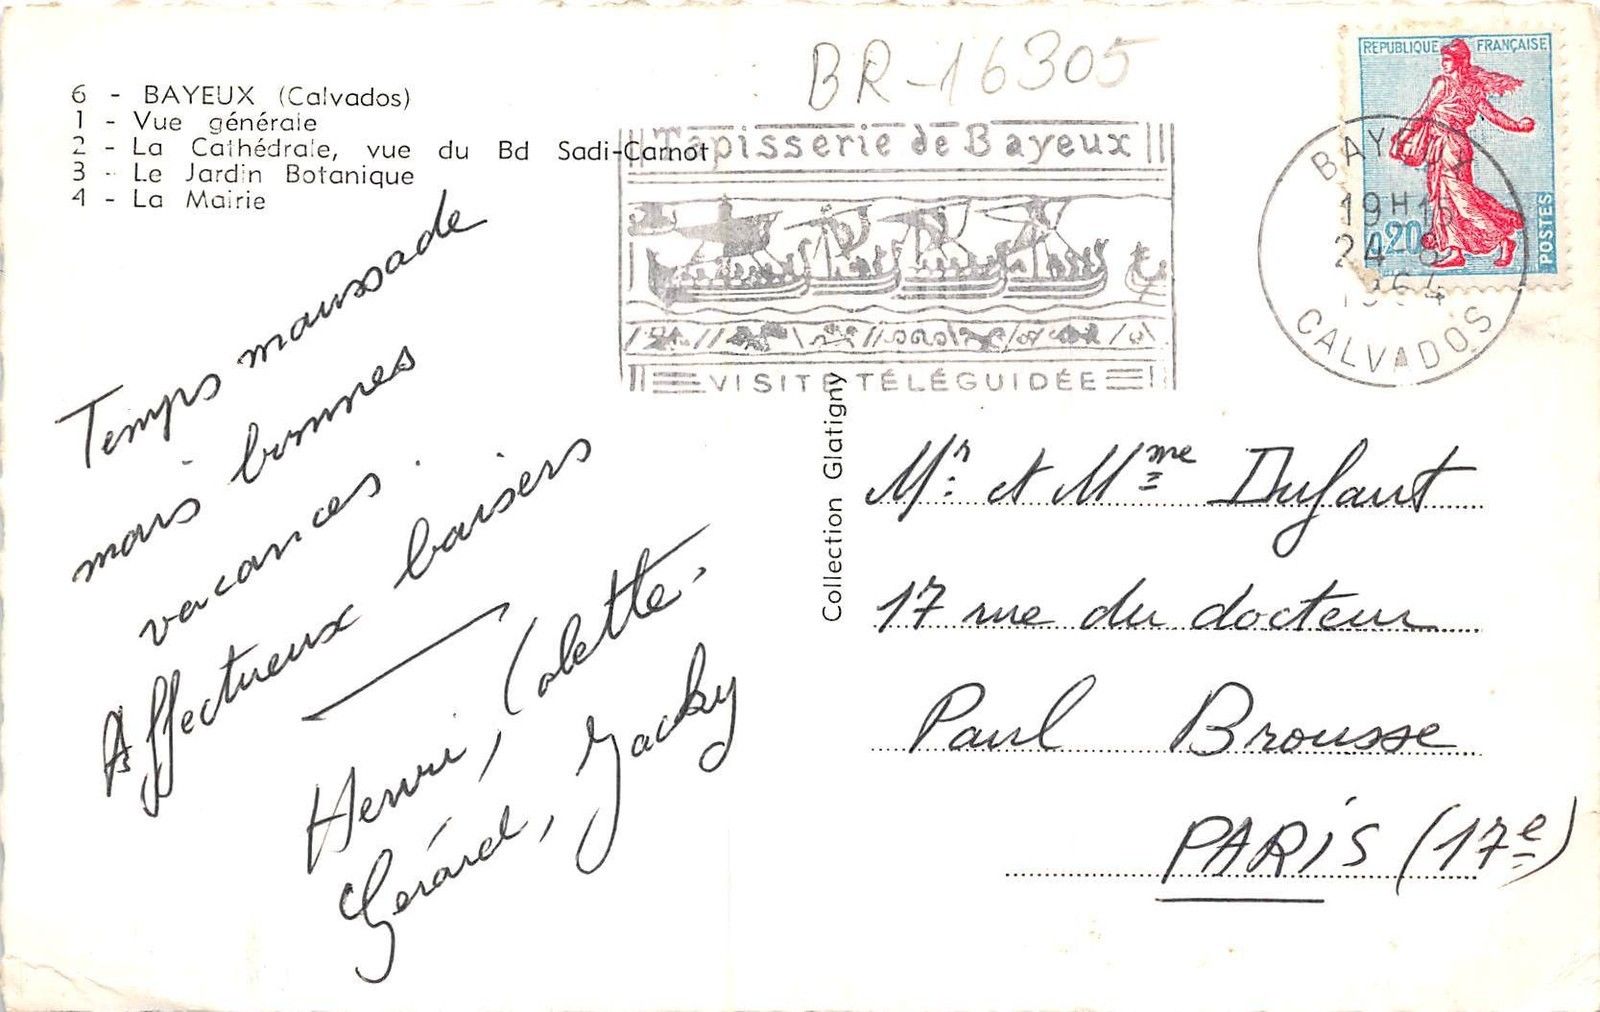 BR-16305
6 - BAYEUX (Calvados)
1 - Vue générale
2 - La Cathédrale, vue du Bd Sadi-Carnot
3 - Le Jardin Botanique
4 - La Mairie
Tapisserie de Bayeux
VISITE TÉLÉGUIDÉE
REPUBLIQUE FRANÇAISE
0,20
POSTES
BAYEUX
19H15
24-8
1964
CALVADOS
Temps maussade
mais bonnes
vacances.
Affectueux baisers
Henri, Colette
Gérard, Jacky
Collection Glatigny
Mr et Mme Dufaut
17 rue du docteur
Paul Brousse
PARIS (17e)